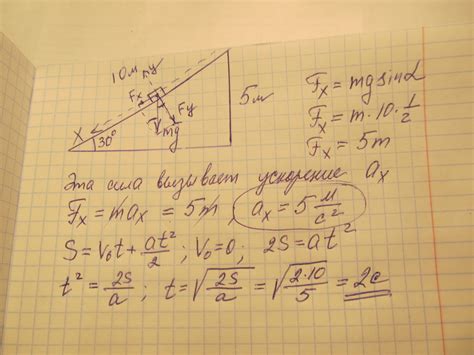 10м
y
Fx
Fy
mg
X
30°
5м
Fx = mg sin α
Fx = m·10·1/2
Fx = 5m
Эта сила вызывает ускорение ax
Fx = max = 5m, ax = 5 м/с²
S = V₀t + at²/2 ; V₀=0; 2S = at²
t² = 2S/a ; t = √(2S/a) = √(2·10/5) = 2c